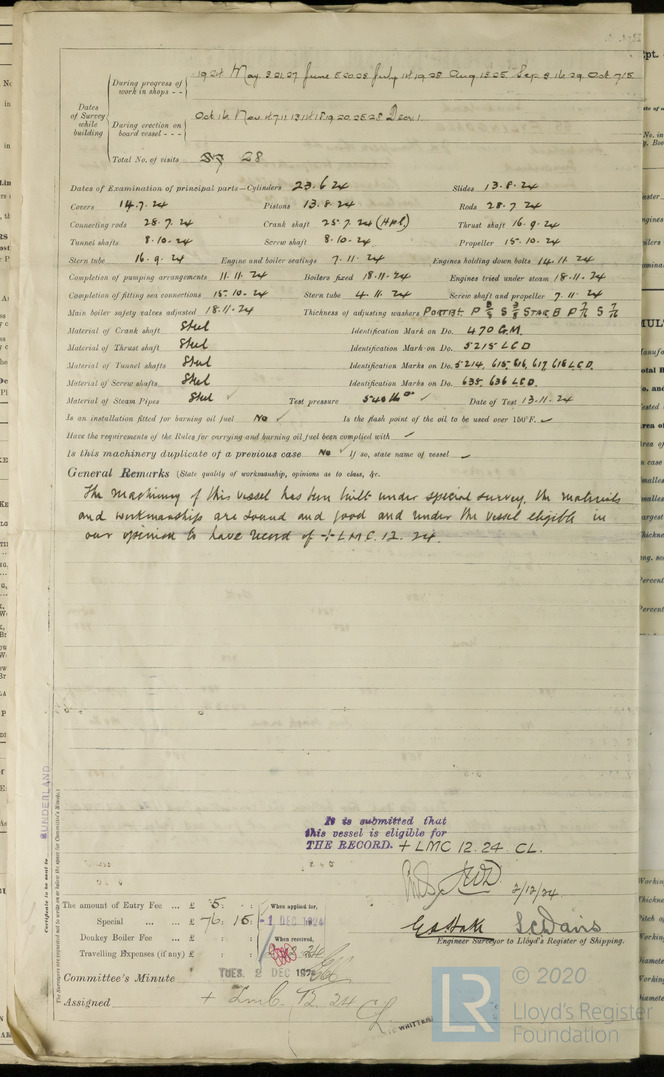 Dates
of Survey
while
building
During progress of
work in shops - -
1924 May 8 21, 27 June 5 20 25 July 1st 19 28 Aug 13 25 Sep 8 16 29 Oct 7/5
During erection on
board vessel - - -
Oct 16 Nov 4 7 11 13 14 18 19 20 25 28 Decr 1.
Total No. of visits 28
Dates of Examination of principal parts—Cylinders 23.6.24 Slides 13.8.24
Covers 14.7.24 Pistons 13.8.24 Rods 28.7.24
Connecting rods 28.7.24 Crank shaft 25.7.24 (Hpl) Thrust shaft 16.9.24
Tunnel shafts 8.10.24 Screw shaft 8.10.24 Propeller 15.10.24
Stern tube 16.9.24 Engine and boiler seatings 7.11.24 Engines holding down bolts 14.11.24
Completion of pumping arrangements 11.11.24 Boilers fixed 18.11.24 Engines tried under steam 18.11.24
Completion of fitting sea connections 15.10.24 Stern tube 4.11.24 Screw shaft and propeller 7.11.24
Main boiler safety valves adjusted 18.11.24 Thickness of adjusting washers PORT BR P 3/8 S 3/8 STAR B P 7/16 S 7/16
Material of Crank shaft Steel Identification Mark on Do. 470 G.M.
Material of Thrust shaft Steel Identification Mark on Do. 5215 LCD
Material of Tunnel shafts Steel Identification Marks on Do. 5214, 615, 616, 617 618 LCD.
Material of Screw shafts Steel Identification Marks on Do. 635, 636 LCD.
Material of Steam Pipes Steel ✓ Test pressure 540 lb ✓ Date of Test 13.11.24
Is an installation fitted for burning oil fuel No ✓ Is the flash point of the oil to be used over 150°F. ✓
Have the requirements of the Rules for carrying and burning oil fuel been complied with ✓
Is this machinery duplicate of a previous case No ✓ If so, state name of vessel ✓
General Remarks (State quality of workmanship, opinions as to class, &c.
The machinery of this vessel has been built under special survey, the materials
and workmanship are sound and good and render the vessel eligible in
our opinion to have record of + LMC. 12. 24.
SUNDERLAND
Certificate to be sent to
It is submitted that
this vessel is eligible for
THE RECORD. + LMC 12.24 CL.
2/12/24
The amount of Entry Fee ... £ 5 : :
Special ... ... £ 76 : 15 :
Donkey Boiler Fee ... £ : :
Travelling Expenses (if any) £ : :
When applied for,
-1 DEC 1924
When received,
L C Davis
Engineer Surveyor to Lloyd's Register of Shipping.
Committee's Minute TUES. 2 DEC 1924
Assigned + LMC 12.24 CL
WRITTEN
LR
© 2020
Lloyd's Register
Foundation